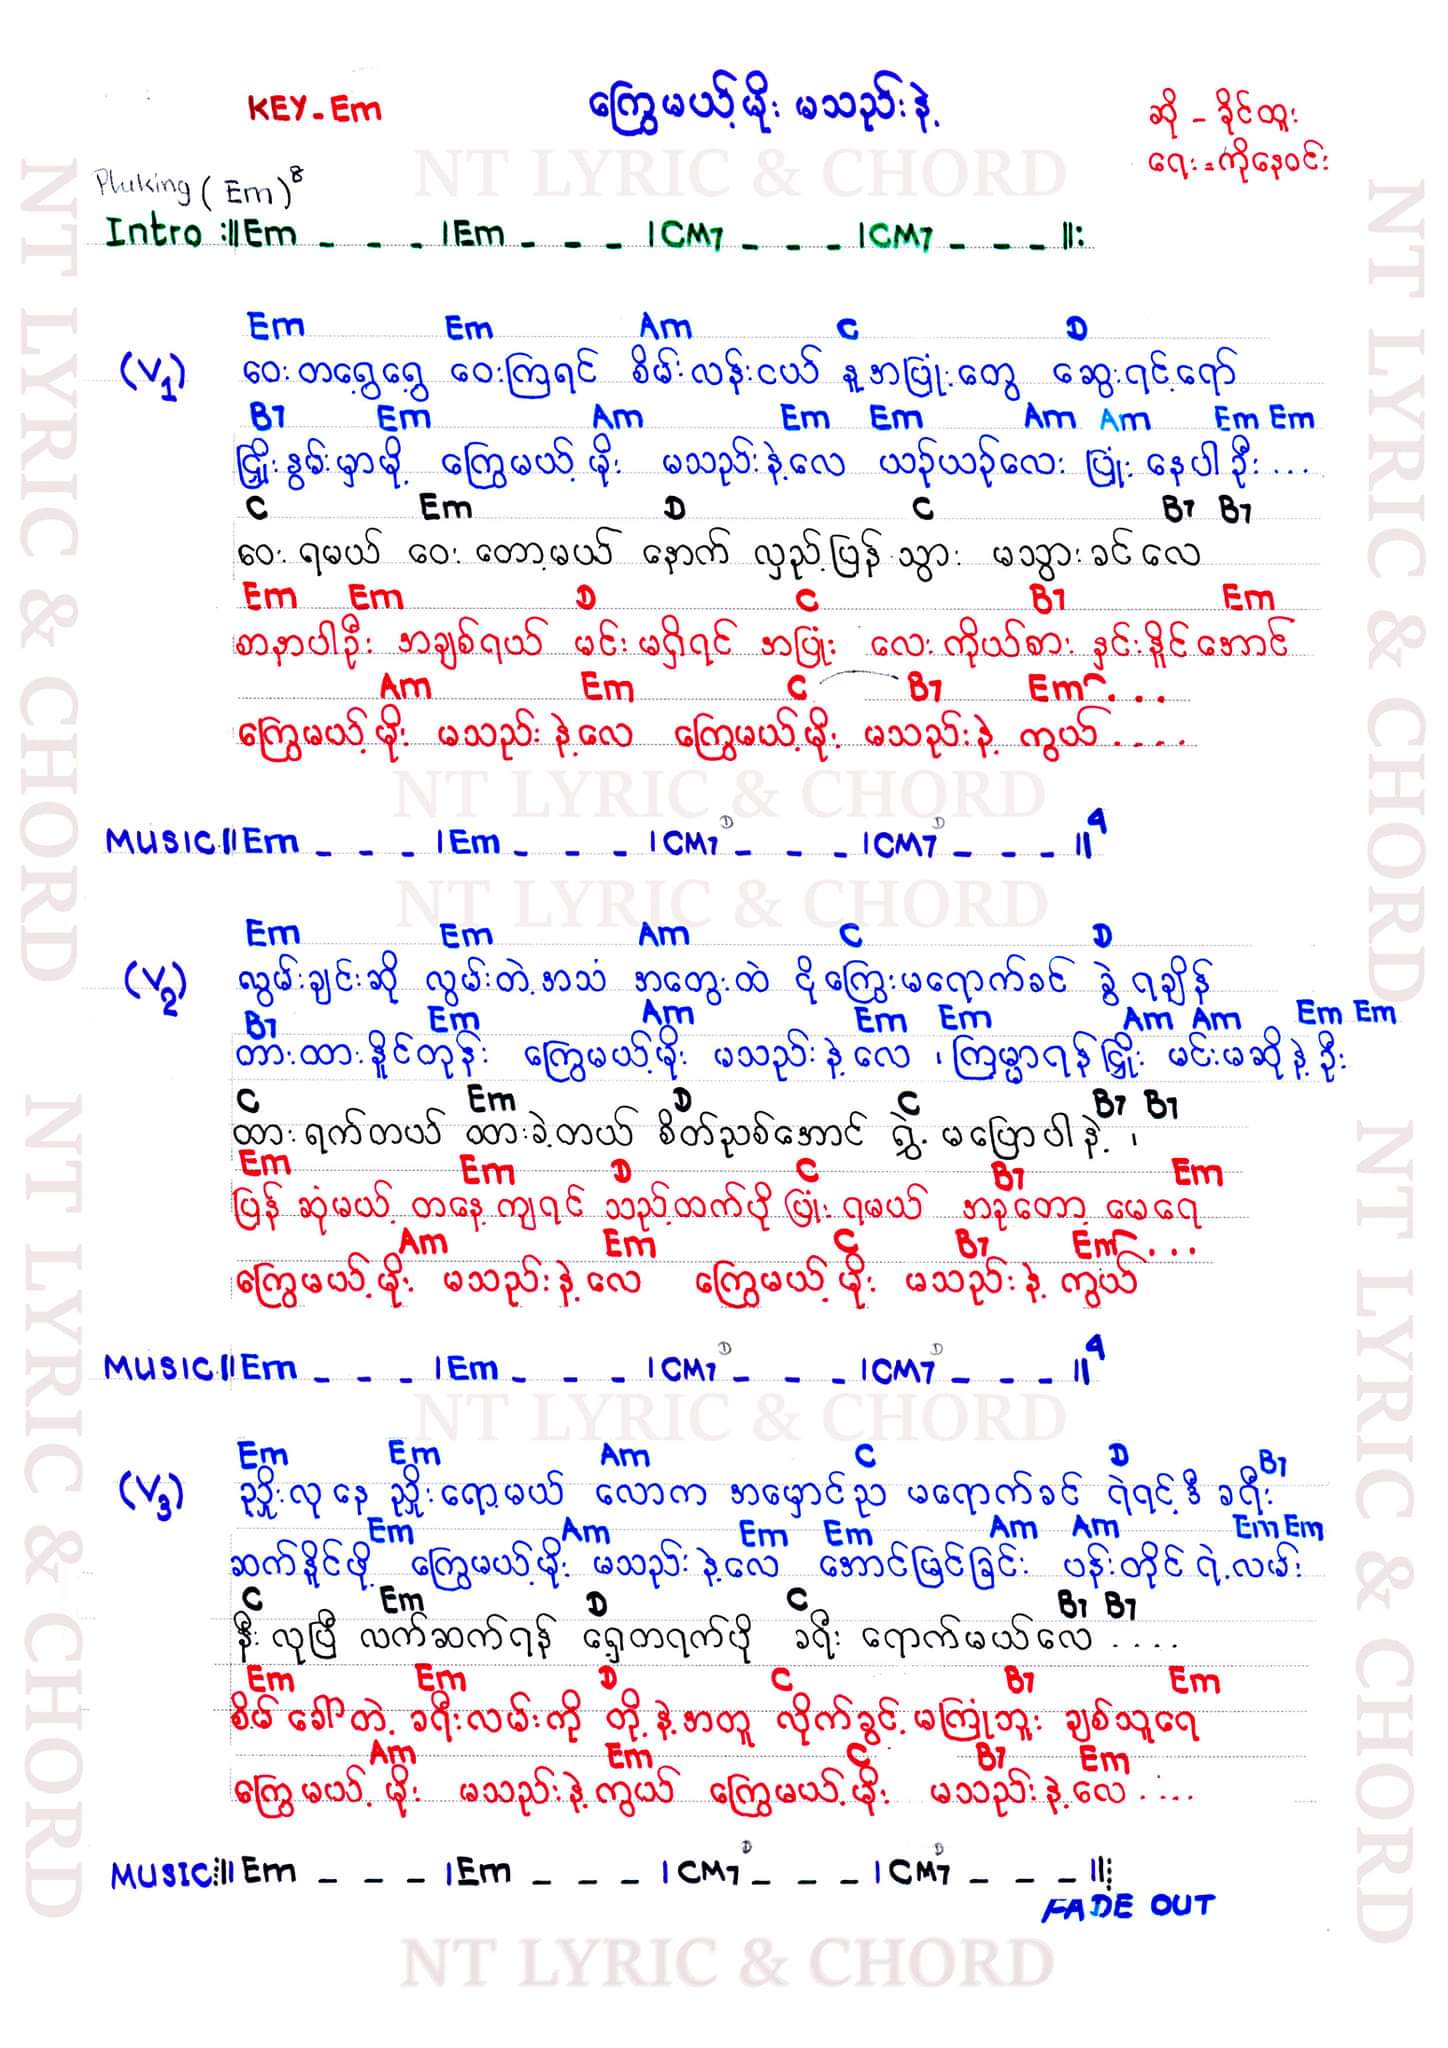 KEY - Em
ကြွေမယ့်မိုး မသည်းနဲ့
ဆို - ခိုင်ထူး
ရေး = ကိုနေဝင်း
NT LYRIC & CHORD
Pluking (Em)8
Intro :||Em _ _ _ |Em _ _ _ |CM7 _ _ _ |CM7 _ _ _ ||:
Em Em Am C D
(V1) ဝေးတရွေ့ရွေ့ ဝေးကြရင် စိမ်းလန်းငယ် နူအပြုံးတွေ ဆွေးရင့်ရော်
B7 Em Am Em Em Am Am Em Em
ငြှိုးနွမ်းမှာမို့ ကြွေမယ့်မိုး မသည်းနဲ့လေ ယဉ်ယဉ်လေး ပြုံးနေပါဦး ...
C Em D C B7 B7
ဝေးရမယ် ဝေးတော့မယ် နောက် လှည့်ပြန်သွား မသွားခင်လေ
Em Em D C B7 Em
စာနာပါဦး အချစ်ရယ် မင်းမရှိရင် အပြုံး လေးကိုယ်စား နှင်းနိူင်အောင်
Am Em C B7 Em ...
ကြွေမယ့်မိုး မသည်းနဲ့လေ ကြွေမယ့်မိုး မသည်းနဲ့ ကွယ် ....
NT LYRIC & CHORD
MUSIC ||Em _ _ _ |Em _ _ _ |CM7 D _ _ _ |CM7 D _ _ _ ||4
NT LYRIC & CHORD
Em Em Am C D
(V2) လွမ်းချင်းဆို လွမ်းတဲ့အသံ အတွေးထဲ ငိုကြွေးမရောက်ခင် ခွဲရချိန်
B7 Em Am Em Em Am Am Em Em
တားထားနိူင်တုန်း ကြွေမယ့်မိုး မသည်းနဲ့လေ ၊ ကြမ္မာရန်ငြှိုး မင်းမဆိုနဲ့ဦး
C Em D C B7 B7
ထားရက်တယ် ထားခဲ့တယ် စိတ်ညစ်အောင် ရွဲ့ မပြောပါနဲ့ ၊
Em Em D C B7 Em
ပြန်ဆုံမယ့် တနေ့ကျရင် သည့်ထက်ပို ပြုံးရမယ် အခုတော့ မေရေ
Am Em C B7 Em ...
ကြွေမယ့်မိုး မသည်းနဲ့လေ ကြွေမယ့်မိုး မသည်းနဲ့ ကွယ်
MUSIC ||Em _ _ _ |Em _ _ _ |CM7 D _ _ _ |CM7 D _ _ _ ||4
NT LYRIC & CHORD
Em Em Am C D B7
(V3) ညှိုးလုနေ ညှိုးရော့မယ် လောက အမှောင်ည မရောက်ခင် ရဲရင့်ဒီ ခရီး
Em Am Em Em Am Am Em Em
ဆက်နိူင်ဖို့ ကြွေမယ့်မိုး မသည်းနဲ့လေ အောင်မြင်ခြင်း ပန်းတိုင်ရဲ့လမ်း
C Em D C B7 B7
နီးလုပြီ လက်ဆက်ရန် ရှေ့တရက်ပို ခရီး ရောက်မယ်လေ ....
Em Em D C B7 Em
စိမ်ခေါ်တဲ့ ခရီးလမ်းကို တို့နဲ့အတူ လိုက်ခွင့်မကြုံဘူး ချစ်သူရေ
Am Em C B7 Em
ကြွေမယ့်မိုး မသည်းနဲ့ကွယ် ကြွေမယ့်မိုး မသည်းနဲ့လေ ....
MUSIC :||Em _ _ _ |Em _ _ _ |CM7 D _ _ _ |CM7 D _ _ _ ||:
FADE OUT
NT LYRIC & CHORD
NT LYRIC & CHORD
NT LYRIC & CHORD
NT LYRIC & CHORD
NT LYRIC & CHORD